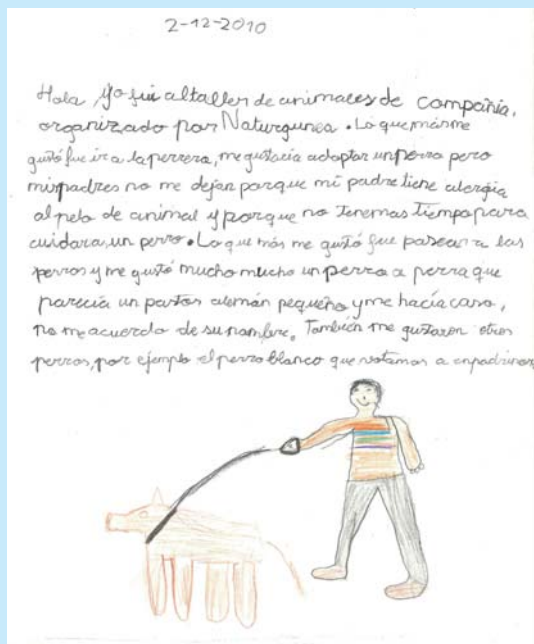 2-12-2010
Hola, yo fui al taller de animales de compañia,
organizado por Naturgunea. Lo que más me
gustó fue ir a la perrera, me gustaría adoptar un perro pero
mis padres no me dejan porque mi padre tiene alergia
al pelo de animal y porque no tenemos tiempo para
cuidar a un perro. Lo que más me gustó fue pasear a los
perros y me gustó mucho mucho un perro o perra que
parecía un pastor alemán pequeño y me hacía caso,
no me acuerdo de su nombre. También me gustaron otros
perros, por ejemplo el perro blanco que votamos a enpadrinar